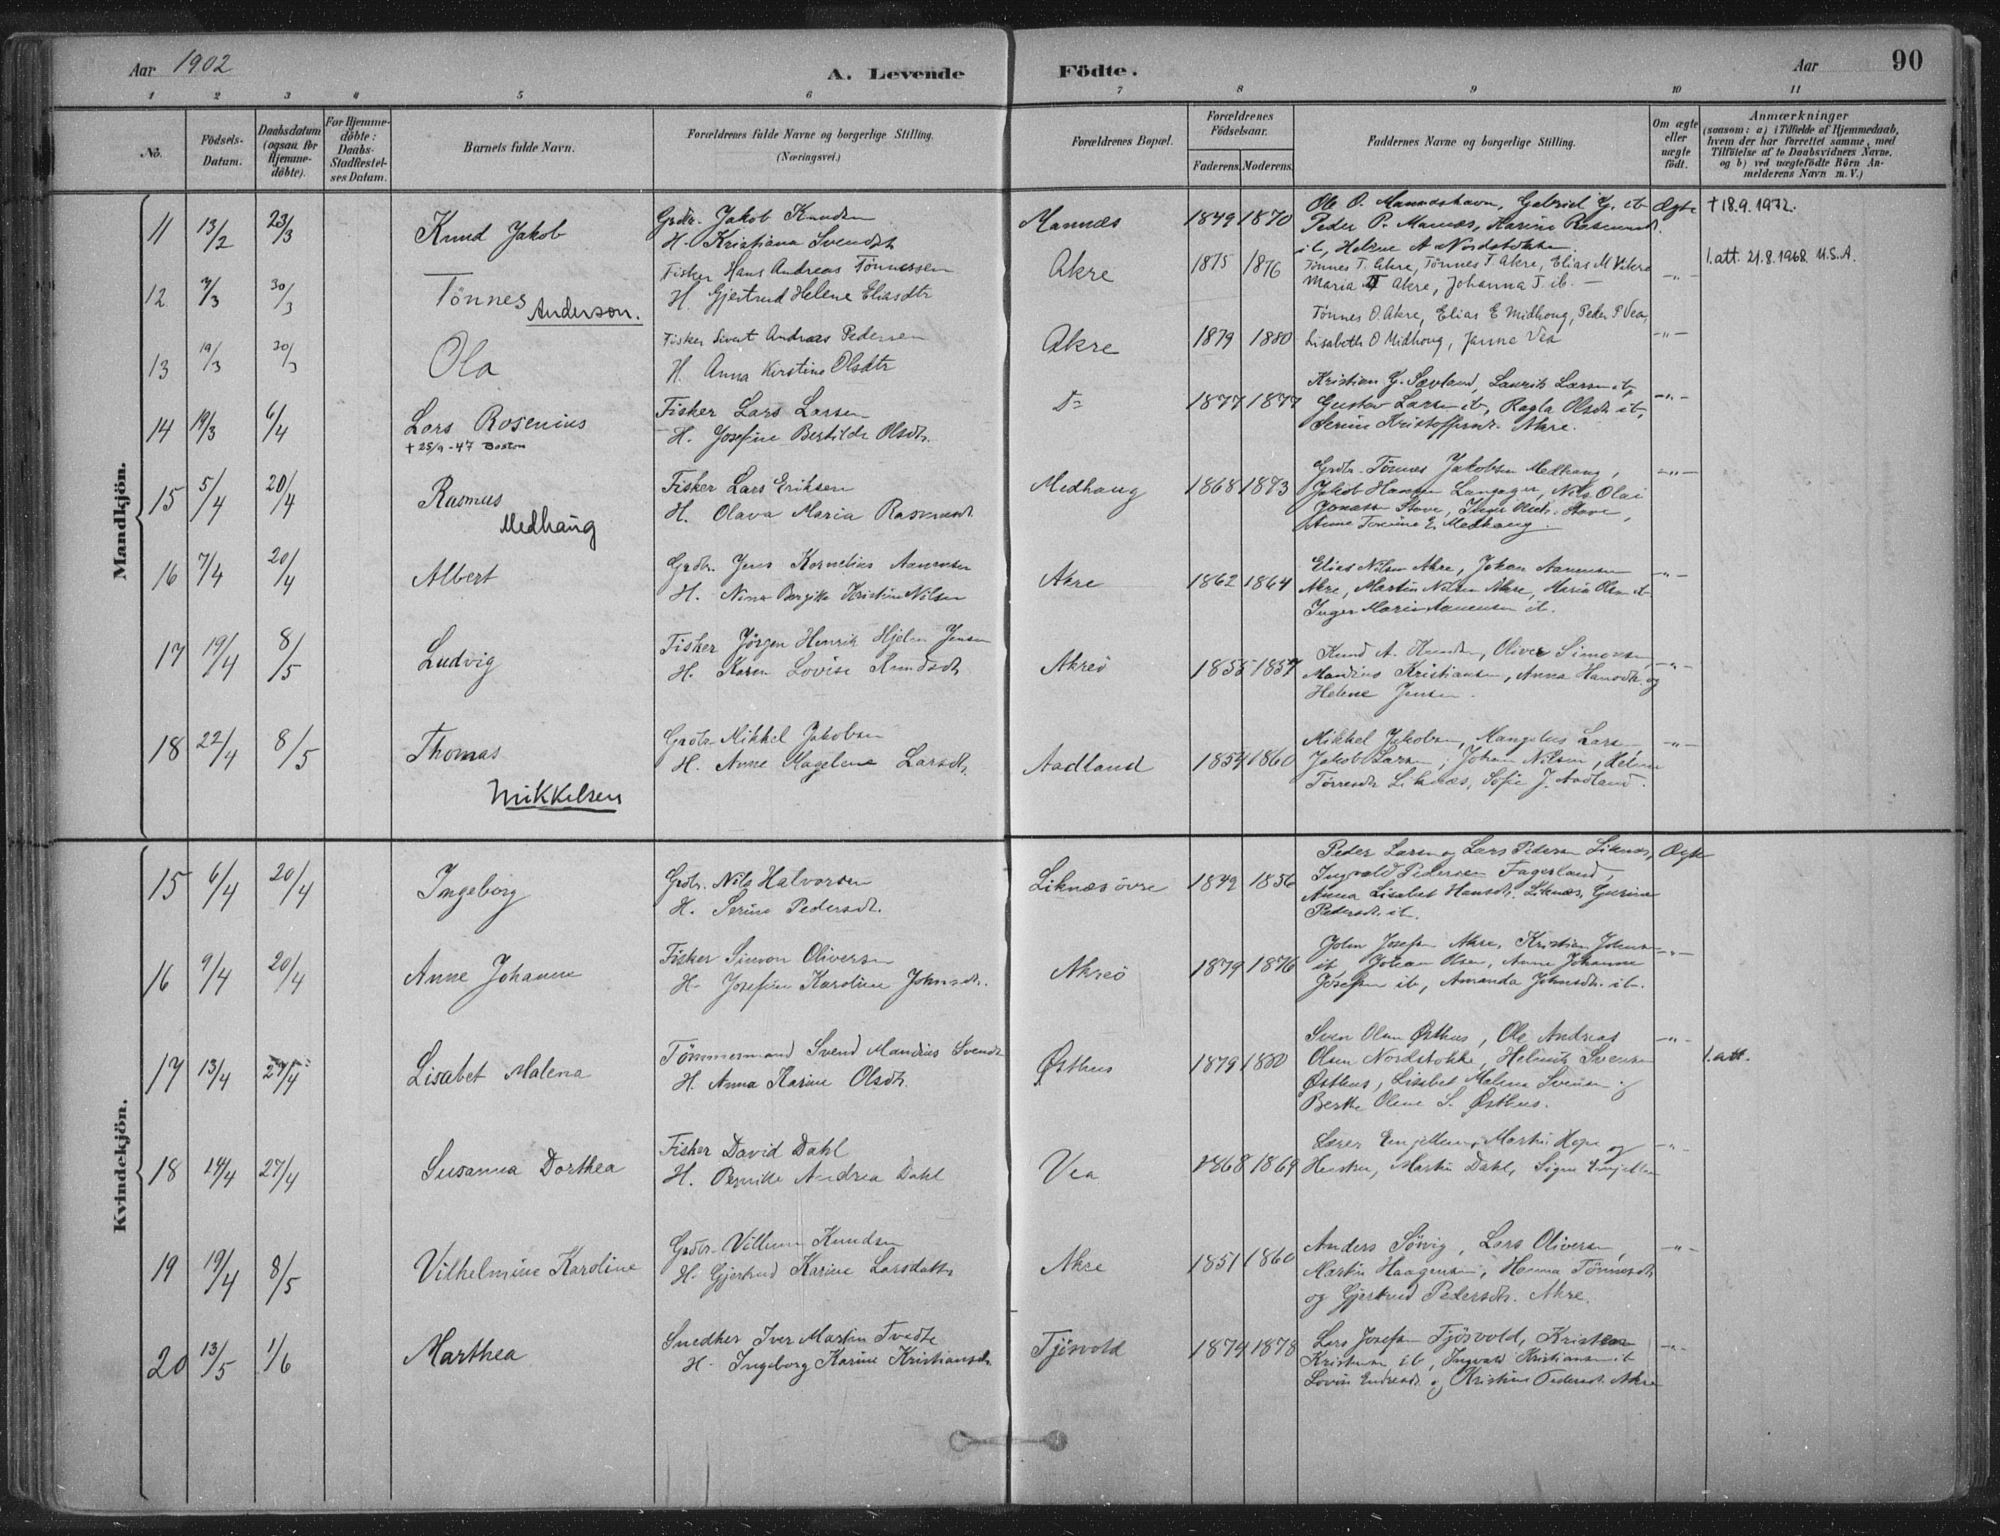 Aar 1902
A. Levende Födte.
Aar
90
1 2 3 4 5 6 7 8 9 10 11
No.
Födsels-Datum.
Daabsdatum (ogsaa for Hjemmedöbte).
For Hjemmedöbte: Daabs-Stadfestelses Datum.
Barnets fulde Navn.
Forældrenes fulde Navne og borgerlige Stilling. (Næringsvei.)
Forældrenes Bopæl.
Forældrenes Födselsaar.
Faderens. Moderens.
Faddernes Navne og borgerlige Stilling.
Om ægte eller uægte födt.
Anmærkninger
(saasom: a) i Tilfælde af Hjemmedaab, hvem der har forrettet samme, med Tilföielse af to Daabsvidners Navne, og b) ved uægtefödte Börn Anmelderens Navn m. V.)
Mandkjön.
11 13/2 23/3 Knud Jakob
Grdbr. Jakob Knudsen
H. Kristiana Svendsdt.
Mannæs 1849 1870
Peder P. Mannæs,
Ægte † 18.9.1972.
12 30/3 Tönnes Anderson.
Fisker Hans Andreas Tönnessen
H. Gjertrud Helene Eliasdtr
Akre 1875 1876
Tönnes T. Akre, Tönnes T. Akre, Elias M Akre
Maria T Akre, Johanna T. ib. —
—"— 1.att. 21.8.1968 U.S.A.
13 19/3 30/3 Ola
Fisker Sivert Andreas Pedersen
H. Anna Kirstine Olsdtr
Akre 1879 1880
Tönnes O. Akre, Elias E Midhoug, Peder P. Vea,
Lisabeth O Midhoug, Janne Vea
—"—
14 19/3 6/4 Lars Rosenius
† 25/9-47 Boston
Fisker Lars Larsen
H. Josefine Bertilde Olsdtr.
Do 1877 1877
Kristian G. Sævland, Laurits Larsen ib,
Gustav Larsen ib, Ragla Olsdt ib,
Akre.
—"—
15 5/4 20/4 Rasmus Medhaug
Fisker Lars Eriksen
H. Olava Maria Rasmusdt.
Medhaug 1868 1873
Grdbr. Tönnes Jakobsen Medhaug,
Jakob Hansen Langager, Nils Olai
Medhaug.
—"—
16 7/4 20/4 Albert
Grdbr. Jens Kornelius
H. Nilsen
Akre 1862 1864
Elias Nilsen Akre, Johan
Akre, Martin Nilsen Akre, Maria Olsen ib
Inger Marie ib.
—"—
17 19/4 8/5 Ludvig
Fisker Jörgen Henrik Hjelm Jensen
H. Karen Lovise Knudsdt.
Akreö 1855 1857
Knud A. Knudsen, Oliver Simonsen,
Mandius Kristiansen, Anna Hansdt. og
Helene Jensen.
—"—
18 22/4 8/5 Thomas Mikkelsen
Grdbr. Mikkel Jakobsen
H. Anne Magelene Larsdt.
Aadland 1854 1860
Mikkel Jakobsen, Mangelus Larsen
Jakob Larsen, Johan Nilsen, Helene
Liknæs, Sofie J. Aadland.
—"—
Kvindekjön.
15 6/4 20/4 Ingeborg
Grdbr. Nils Halvorsen
H. Serine Pedersdt.
Liknæs övre 1849 1856
Peder Larsen og Lars Pedersen Liknæs,
Ingvald Pedersen Fagerland,
Anna Lisabet Hansdt. Liknæs,
Pedersdt. ib.
Ægte
16 9/4 20/4 Anne Johanne
Fisker Simon Oliversen
H. Josefine Karoline Johnsdt.
Akreö 1879 1876
John Josefsen Akre, Kristian Johnsen
ib Johan Olsen, Anne Johanne
Josefsen ib, Amanda Johnsdt. ib.
—"—
17 13/4 27/4 Lisabet Malena
Tömmermand Svend Mandius Svendsen
H. Anna Karine Olsdt.
Østhus 1879 1880
Sven Olsen Østhus, Ole Andreas
Olsen Nordstokke, Helmik Svensen
Østhus, Lisabet Malena Svensen og
Berthe Olene S. Østhus.
—"— 1.att.
18 14/4 27/4 Susanna Dorthea
Fisker David Dahl
H. Andrea Dahl
Vea 1868 1869
Lærer Martin Hope og
Hustru, Martin Dahl, Signe
—"—
19 19/4 8/5 Vilhelmine Karoline
Grdbr. Villum Knudsen
H. Gjertrud Karine Larsdatter
Akre 1851 1860
Anders Sövig, Lars Oliversen,
Martin Haagensen, Hanna Tönnesdt.
og Gjertrud Pedersdt. Akre.
—"—
20 13/5 1/6 Marthea
Snedker Iver Martin Tvedte
H. Ingeborg Karine Kristiansdt.
Tjösvold 1874 1878
Lars Josefsen Tjösvold, Kristian
Kristensen ib, Ingvald Kristiansen ib
Lovise Endresdt. og Kristine Pedersdt. Akre
—"—